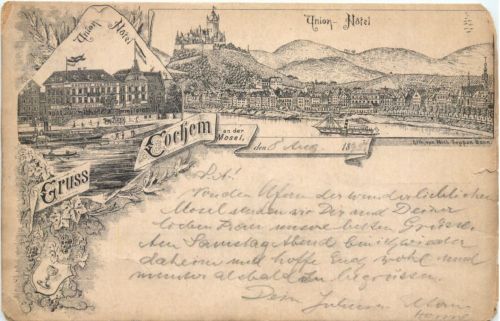 Union Hôtel
Union - Hôtel
Gruss
Cochem
an der
Mosel,
den 8 Aug 189
Von den Ufern der wunderlieblichen
Mosel senden wir Dir und Deiner
lieben Frau unsere besten Grüsse.
Am Samstag Abend sind wir wieder
daheim und hoffe Euch wohl und
munter alsbald zu begrüssen.
Dein Julius